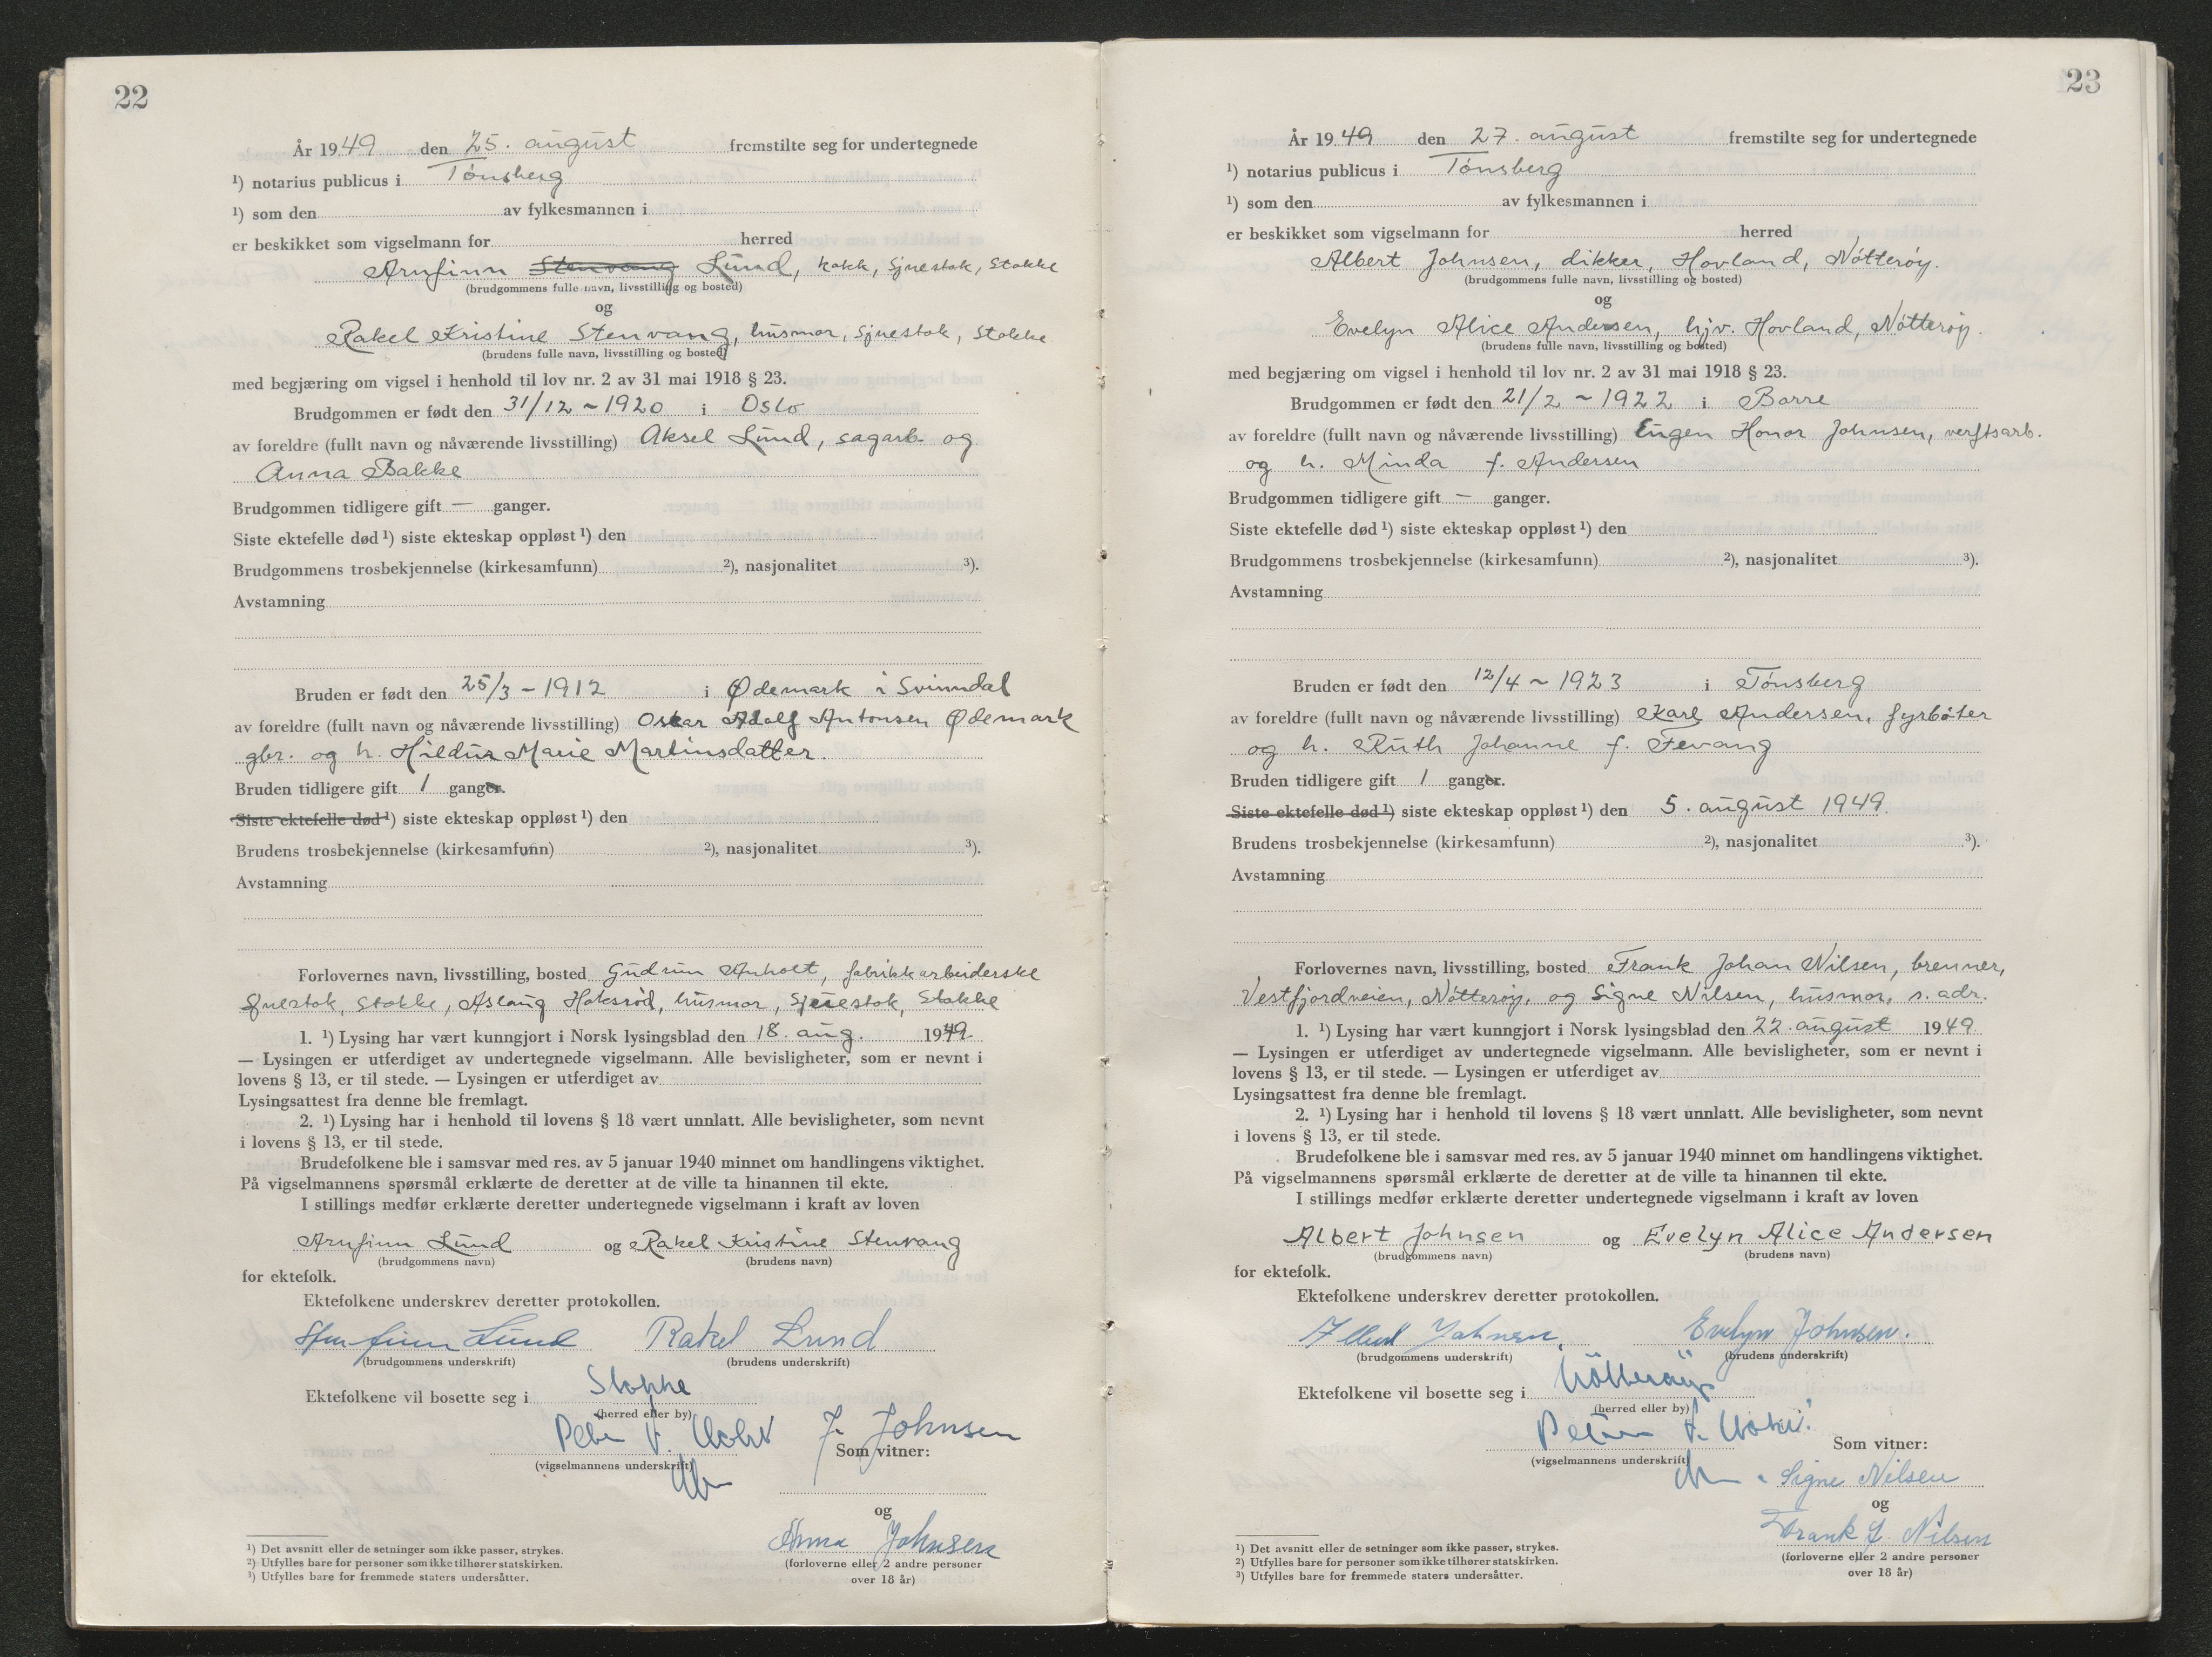 22
År 1949 den 25. august fremstilte seg for undertegnede
¹) notarius publicus i Tönsberg
¹) som den av fylkesmannen i
er beskikket som vigselmann for herred
Arnfinn Stenvang Lund, kokk, Sjuestok, Stokke
(brudgommens fulle navn, livsstilling og bosted)
og
Rakel Kristine Stenvang, husmor, Sjuestok, Stokke
(brudens fulle navn, livsstilling og bosted)
med begjæring om vigsel i henhold til lov nr. 2 av 31 mai 1918 § 23.
Brudgommen er født den 31/12 - 1920 i Oslo
av foreldre (fullt navn og nåværende livsstilling) Aksel Lund, sagarb. og
Anna Bakke
Brudgommen tidligere gift — ganger.
Siste ektefelle død ¹) siste ekteskap oppløst ¹) den
Brudgommens trosbekjennelse (kirkesamfunn) ²), nasjonalitet ³).
Avstamning
Bruden er født den 25/3 - 1912 i Ødemark i Svinndal
av foreldre (fullt navn og nåværende livsstilling) Oskar Adolf Antonsen Ødemark
gbr. og h. Hildur Marie Martinsdatter.
Bruden tidligere gift 1 ganger.
Siste ektefelle død ¹) siste ekteskap oppløst ¹) den
Brudens trosbekjennelse (kirkesamfunn) ²), nasjonalitet ³).
Avstamning
Forlovernes navn, livsstilling, bosted Gudrun Anholt, fabrikkarbeiderske
Sjuestok, Stokke, Aslaug Haksröd, husmor, Sjuestok, Stokke
1. ¹) Lysing har vært kunngjort i Norsk lysingsblad den 18. aug. 1949
— Lysingen er utferdiget av undertegnede vigselmann. Alle bevisligheter, som er nevnt i
lovens § 13, er til stede. — Lysingen er utferdiget av
Lysingsattest fra denne ble fremlagt.
2. ¹) Lysing har i henhold til lovens § 18 vært unnlatt. Alle bevisligheter, som nevnt
i lovens § 13, er til stede.
Brudefolkene ble i samsvar med res. av 5 januar 1940 minnet om handlingens viktighet.
På vigselmannens spørsmål erklærte de deretter at de ville ta hinannen til ekte.
I stillings medfør erklærte deretter undertegnede vigselmann i kraft av loven
Arnfinn Lund og Rakel Kristine Stenvang
(brudgommens navn) (brudens navn)
for ektefolk.
Ektefolkene underskrev deretter protokollen.
Arnfinn Lund Rakel Lund
(brudgommens underskrift) (brudens underskrift)
Ektefolkene vil bosette seg i Stokke
(herred eller by)
J. Johnsen
Som vitner:
(vigselmannens underskrift)
og
Anna Johnsen
(forloverne eller 2 andre personer
over 18 år)
¹) Det avsnitt eller de setninger som ikke passer, strykes.
²) Utfylles bare for personer som ikke tilhører statskirken.
³) Utfylles bare for fremmede staters undersåtter.
23
År 1949 den 27. august fremstilte seg for undertegnede
¹) notarius publicus i Tönsberg
¹) som den av fylkesmannen i
er beskikket som vigselmann for herred
Albert Johnsen, dikker, Hovland, Nötteröy.
(brudgommens fulle navn, livsstilling og bosted)
og
Evelyn Alice Andersen, hjv. Hovland, Nötteröy.
(brudens fulle navn, livsstilling og bosted)
med begjæring om vigsel i henhold til lov nr. 2 av 31 mai 1918 § 23.
Brudgommen er født den 21/2 - 1922 i Borre
av foreldre (fullt navn og nåværende livsstilling) Eugen Honor Johnsen, verftsarb.
og h. Minda f. Andersen
Brudgommen tidligere gift — ganger.
Siste ektefelle død ¹) siste ekteskap oppløst ¹) den
Brudgommens trosbekjennelse (kirkesamfunn) ²), nasjonalitet ³).
Avstamning
Bruden er født den 12/4 - 1923 i Tönsberg
av foreldre (fullt navn og nåværende livsstilling) Karl Andersen, fyrböter
og h. Ruth Johanne f. Fevang
Bruden tidligere gift 1 ganger.
Siste ektefelle død ¹) siste ekteskap oppløst ¹) den 5. august 1949.
Brudens trosbekjennelse (kirkesamfunn) ²), nasjonalitet ³).
Avstamning
Forlovernes navn, livsstilling, bosted Frank Johan Nilsen, brenner,
Vestfjordveien, Nötteröy, og Signe Nilsen, husmor, s. adr.
1. ¹) Lysing har vært kunngjort i Norsk lysingsblad den 22. august 1949
— Lysingen er utferdiget av undertegnede vigselmann. Alle bevisligheter, som er nevnt i
lovens § 13, er til stede. — Lysingen er utferdiget av
Lysingsattest fra denne ble fremlagt.
2. ¹) Lysing har i henhold til lovens § 18 vært unnlatt. Alle bevisligheter, som nevnt
i lovens § 13, er til stede.
Brudefolkene ble i samsvar med res. av 5 januar 1940 minnet om handlingens viktighet.
På vigselmannens spørsmål erklærte de deretter at de ville ta hinannen til ekte.
I stillings medfør erklærte deretter undertegnede vigselmann i kraft av loven
Albert Johnsen og Evelyn Alice Andersen
(brudgommens navn) (brudens navn)
for ektefolk.
Ektefolkene underskrev deretter protokollen.
Albert Johnsen. Evelyn Johnsen.
(brudgommens underskrift) (brudens underskrift)
Ektefolkene vil bosette seg i Nötteröy
(herred eller by)
Som vitner:
(vigselmannens underskrift)
Signe Nilsen
og
Frank J. Nilsen
(forloverne eller 2 andre personer
over 18 år)
¹) Det avsnitt eller de setninger som ikke passer, strykes.
²) Utfylles bare for personer som ikke tilhører statskirken.
³) Utfylles bare for fremmede staters undersåtter.